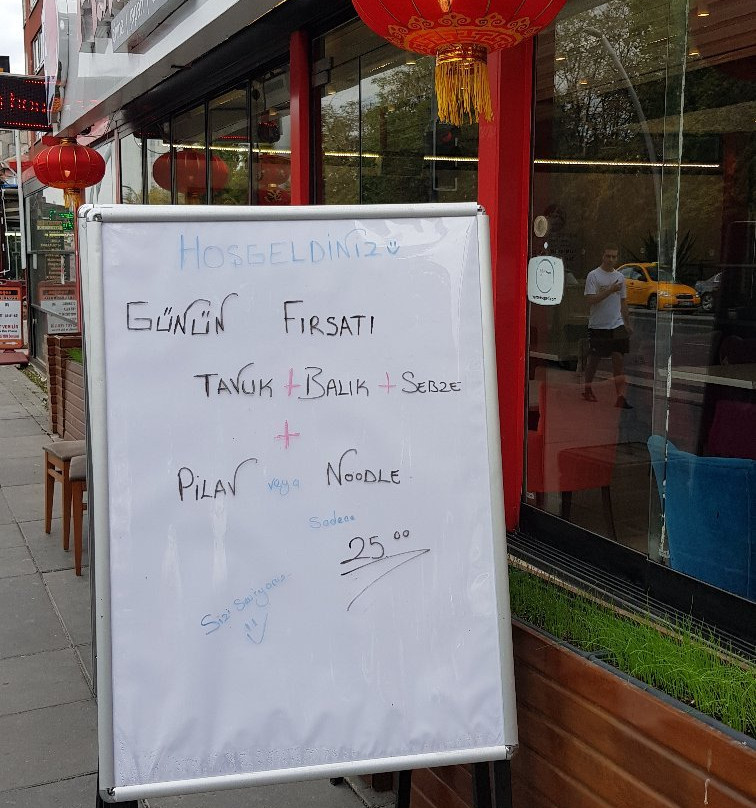 HOŞGELDİNİZ
GÜNÜN FIRSATI
TAVUK + BALIK + SEBZE
+
PİLAV veya NOODLE
Sadece
25.00
Sizi Seviyoruz